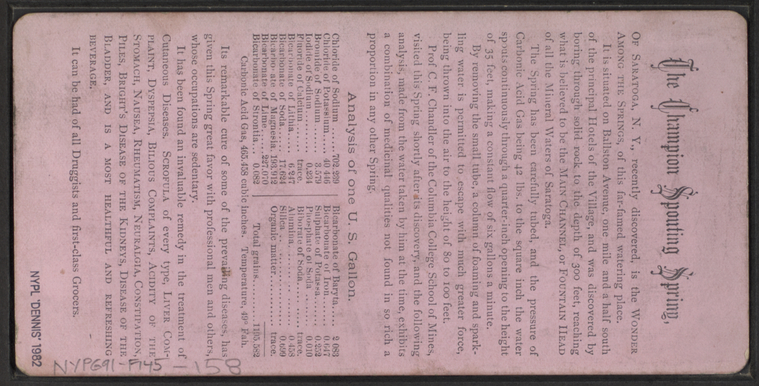 The Champion Spouting Spring,
OF SARATOGA, N. Y., recently discovered, is the WONDER
AMONG THE SPRINGS, of this far-famed watering place.
It is situated on Ballston Avenue, one mile and a half south
of the principal Hotels of the Village, and was discovered by
boring through solid rock to the depth of 300 feet, reaching
what is believed to be the MAIN CHANNEL, or FOUNTAIN HEAD
of all the Mineral Waters of Saratoga.
The Spring has been carefully tubed, and the pressure of
Carbonic Acid Gas being 42 lbs. to the square inch the water
spouts continuously through a quarter-inch opening to the height
of 35 feet, making a constant flow of six gallons a minute.
By removing the small tube, a column of foaming and spark-
ling water is permitted to escape with much greater force,
being thrown into the air to the height of 80 to 100 feet.
Prof C. F. Chandler of the Columbia College School of Mines,
visited this Spring shortly after its discovery, and the following
analysis, made from the water taken by him at the time, exhibits
a combination of medicinal qualities not found in so rich a
proportion in any other Spring.
Analysis of one U. S. Gallon.
Chloride of Sodium 702.239
Chloride of Potassium 40.446
Bromide of Sodium 3.579
Iodide of Sodium 0.234
Fluoride of Calcium trace.
Bicarbonate of Lithia 6.247
Bicarbonate of Soda 17.624
Bicarbonate of Magnesia 193.912
Bicarbonate of Lime 227.070
Bicarbonate of Strontia 0.082
Bicarbonate of Baryta 2.083
Bicarbonate of Iron 0.647
Sulphate of Potassa 0.252
Phosphate of Soda 0.010
Biborate of Soda trace.
Alumina 0.458
Silica 0.699
Organic matter trace.
Total grains 1195.582
Carbonic Acid Gas, 465.458 cubic inches. Temperature, 49° Fah.
Its remarkable cure of some of the prevailing diseases, has
given this Spring great favor with professional men and others,
whose occupations are sedentary.
It has been found an invaluable remedy in the treatment of
Cutaneous Diseases, SCROFULA of every type, LIVER COM-
PLAINT, DYSPEPSIA, BILIOUS COMPLAINTS, ACIDITY OF THE
STOMACH, NAUSEA, RHEUMATISM, NEURALGIA, CONSTIPATION,
PILES, BRIGHT'S DISEASE OF THE KIDNEYS, DISEASE OF THE
BLADDER, AND IS A MOST HEALTHFUL AND REFRESHING
BEVERAGE.
It can be had of all Druggists and first-class Grocers.
NYPL 'DENNIS' 1982
NYPG91-F145-158